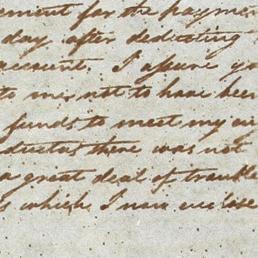 ment for the payme
day after deducting
account. I assure yo
to me not to have been
funds to meet my
there was not
a great deal of trouble
which I now enclose